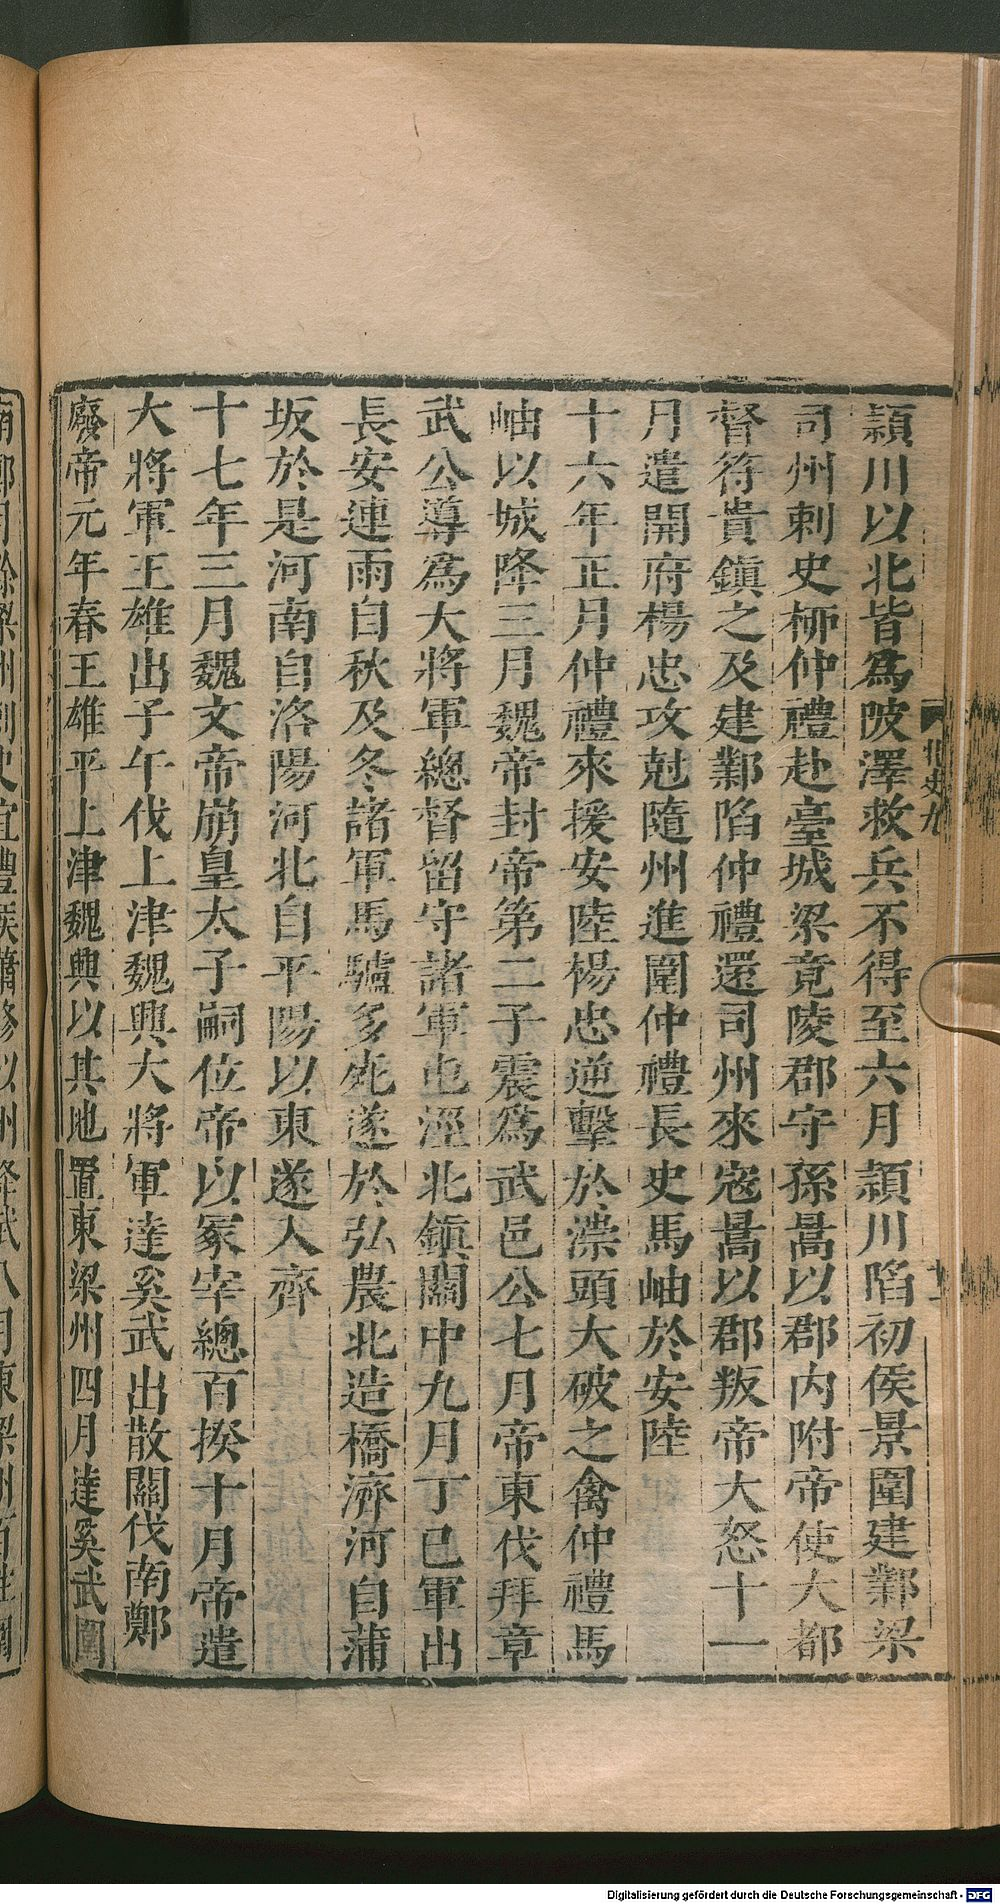 潁川以北皆爲陂澤救兵不得至六月潁川陷初侯景圍建鄴梁
司州刺史柳仲禮赴臺城梁竟陵郡守孫暠以郡内附帝使大都
督符貴鎮之及建鄴陷仲禮還司州來寇暠以郡叛帝大怒十一
月遣開府楊忠攻尅隨州進圍仲禮長史馬岫於安陸
十六年正月仲禮來援安陸楊忠逆擊於漴頭大破之禽仲禮馬
岫以城降三月魏帝封帝第二子震爲武邑公七月帝東伐拜章
武公導爲大將軍總督留守諸軍屯涇北鎮關中九月丁巳軍出
長安連雨自秋及冬諸軍馬驢多死遂於弘農北造橋濟河自蒲
坂於是河南自洛陽河北自平陽以東遂入齊
十七年三月魏文帝崩皇太子嗣位帝以冢宰總百揆十月帝遣
大將軍王雄出子午伐上津魏興大將軍達奚武出散關伐南鄭
廢帝元年春王雄平上津魏興以其地置東梁州四月達奚武圍
北史九
Digitalisierung gefördert durch die Deutsche Forschungsgemeinschaft - DFG